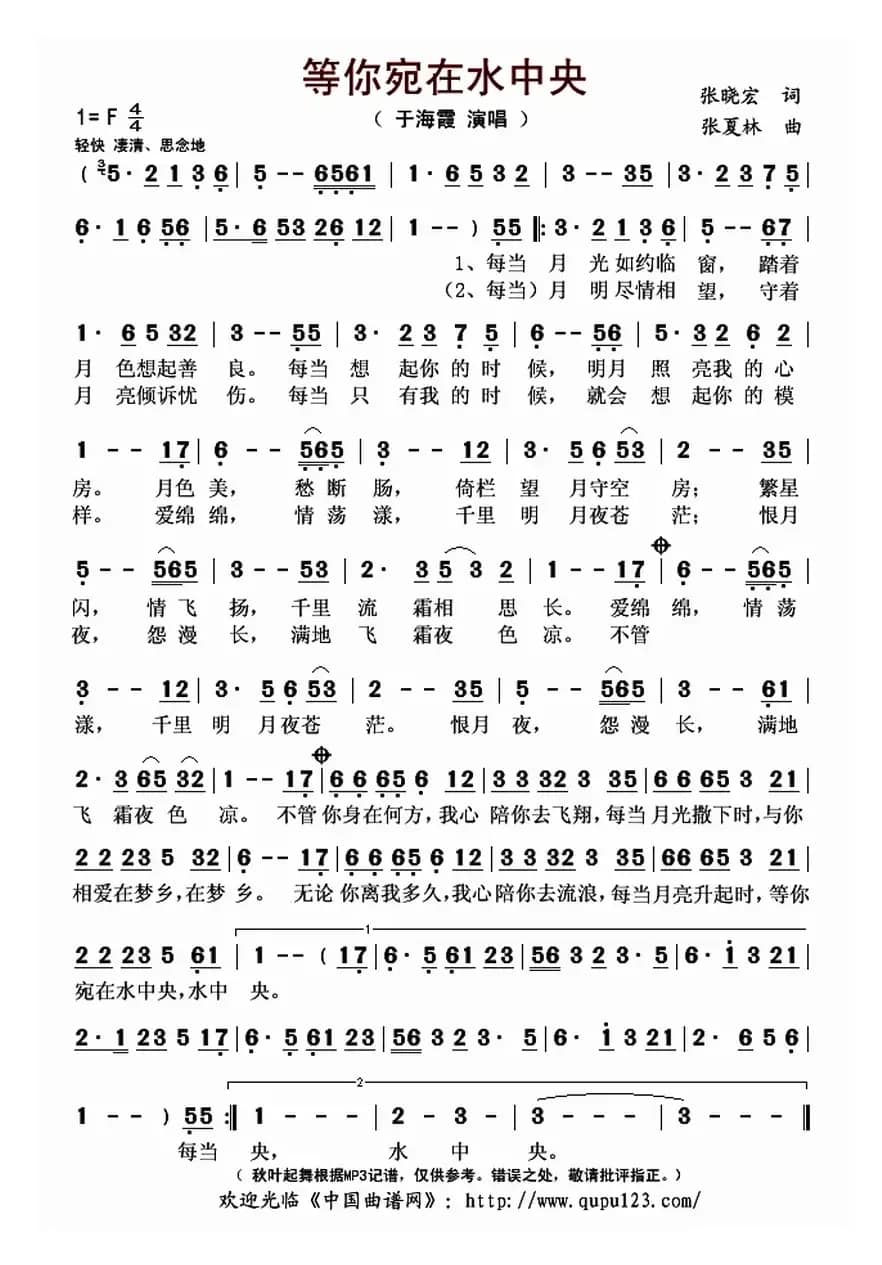 等你宛在水中央
1= F 4/4
（ 于海霞 演唱 ）
张晓宏 词
张夏林 曲
轻快 凄清、思念地
( 3 5· 2 1 3 6 | 5 -- 6561 | 1· 6 5 3 2 | 3 -- 35 | 3· 2 3 7 5 |
6· 1 6 56 | 5· 6 53 26 12 | 1 -- ) 55 ‖: 3· 2 1 3 6 | 5 -- 67 |
1、每当 月 光 如约临 窗， 踏着
（2、每当）月 明 尽情相 望， 守着
1· 6 5 32 | 3 -- 55 | 3· 2 3 7 5 | 6 -- 56 | 5· 3 2 6 2 |
月 色想起善 良。 每当 想 起你 的 时 候， 明月 照 亮我 的 心
月 亮倾诉忧 伤。 每当 只 有我 的 时 候， 就会 想 起你 的 模
1 - - 17 | 6 - - 565 | 3 -- 12 | 3· 5 6 53 | 2 -- 35 |
房。 月色 美， 愁 断 肠， 倚栏 望 月守空 房； 繁星
样。 爱绵 绵， 情 荡 漾， 千里 明 月夜苍 茫； 恨月
5 - - 565 | 3 -- 53 | 2· 3 5 3 2 | 1 -- 17 | 6 -- 565 |
闪， 情 飞 扬， 千里 流 霜相 思 长。 爱绵 绵， 情 荡
夜， 怨 漫 长， 满地 飞 霜夜 色 凉。 不管
3 - - 12 | 3· 5 6 53 | 2 -- 35 | 5 -- 565 | 3 -- 61 |
漾， 千里 明 月夜苍 茫。 恨月 夜， 怨 漫 长， 满地
2· 3 65 32 | 1 -- 17 | 6 6 65 6 12 | 3 3 32 3 35 | 6 6 65 3 21 |
飞 霜夜 色 凉。 不管 你身在何方，我心 陪你去飞翔，每当 月光撒下时，与你
2 2 23 5 32 | 6 -- 17 | 6 6 65 6 12 | 3 3 32 3 35 | 66 65 3 21 |
相爱在梦乡，在梦 乡。 无论 你离我多久，我心 陪你去流浪，每当月亮升起时，等你
1
2 2 23 5 61 | 1 -- ( 17 | 6· 5 61 23 | 56 3 2 3· 5 | 6· 1 3 21 |
宛在水中央，水中 央。
2· 1 23 5 17 | 6· 5 61 23 | 56 3 2 3· 5 | 6· 1 3 21 | 2· 6 5 6 |
2
1 -- ) 55 :‖ 1 - - - | 2 - 3 - | 3 - - - | 3 - - - ‖
每当 央， 水 中 央。
（ 秋叶起舞根据MP3记谱，仅供参考。错误之处，敬请批评指正。）
欢迎光临《中国曲谱网》：http://www.qupu123.com/